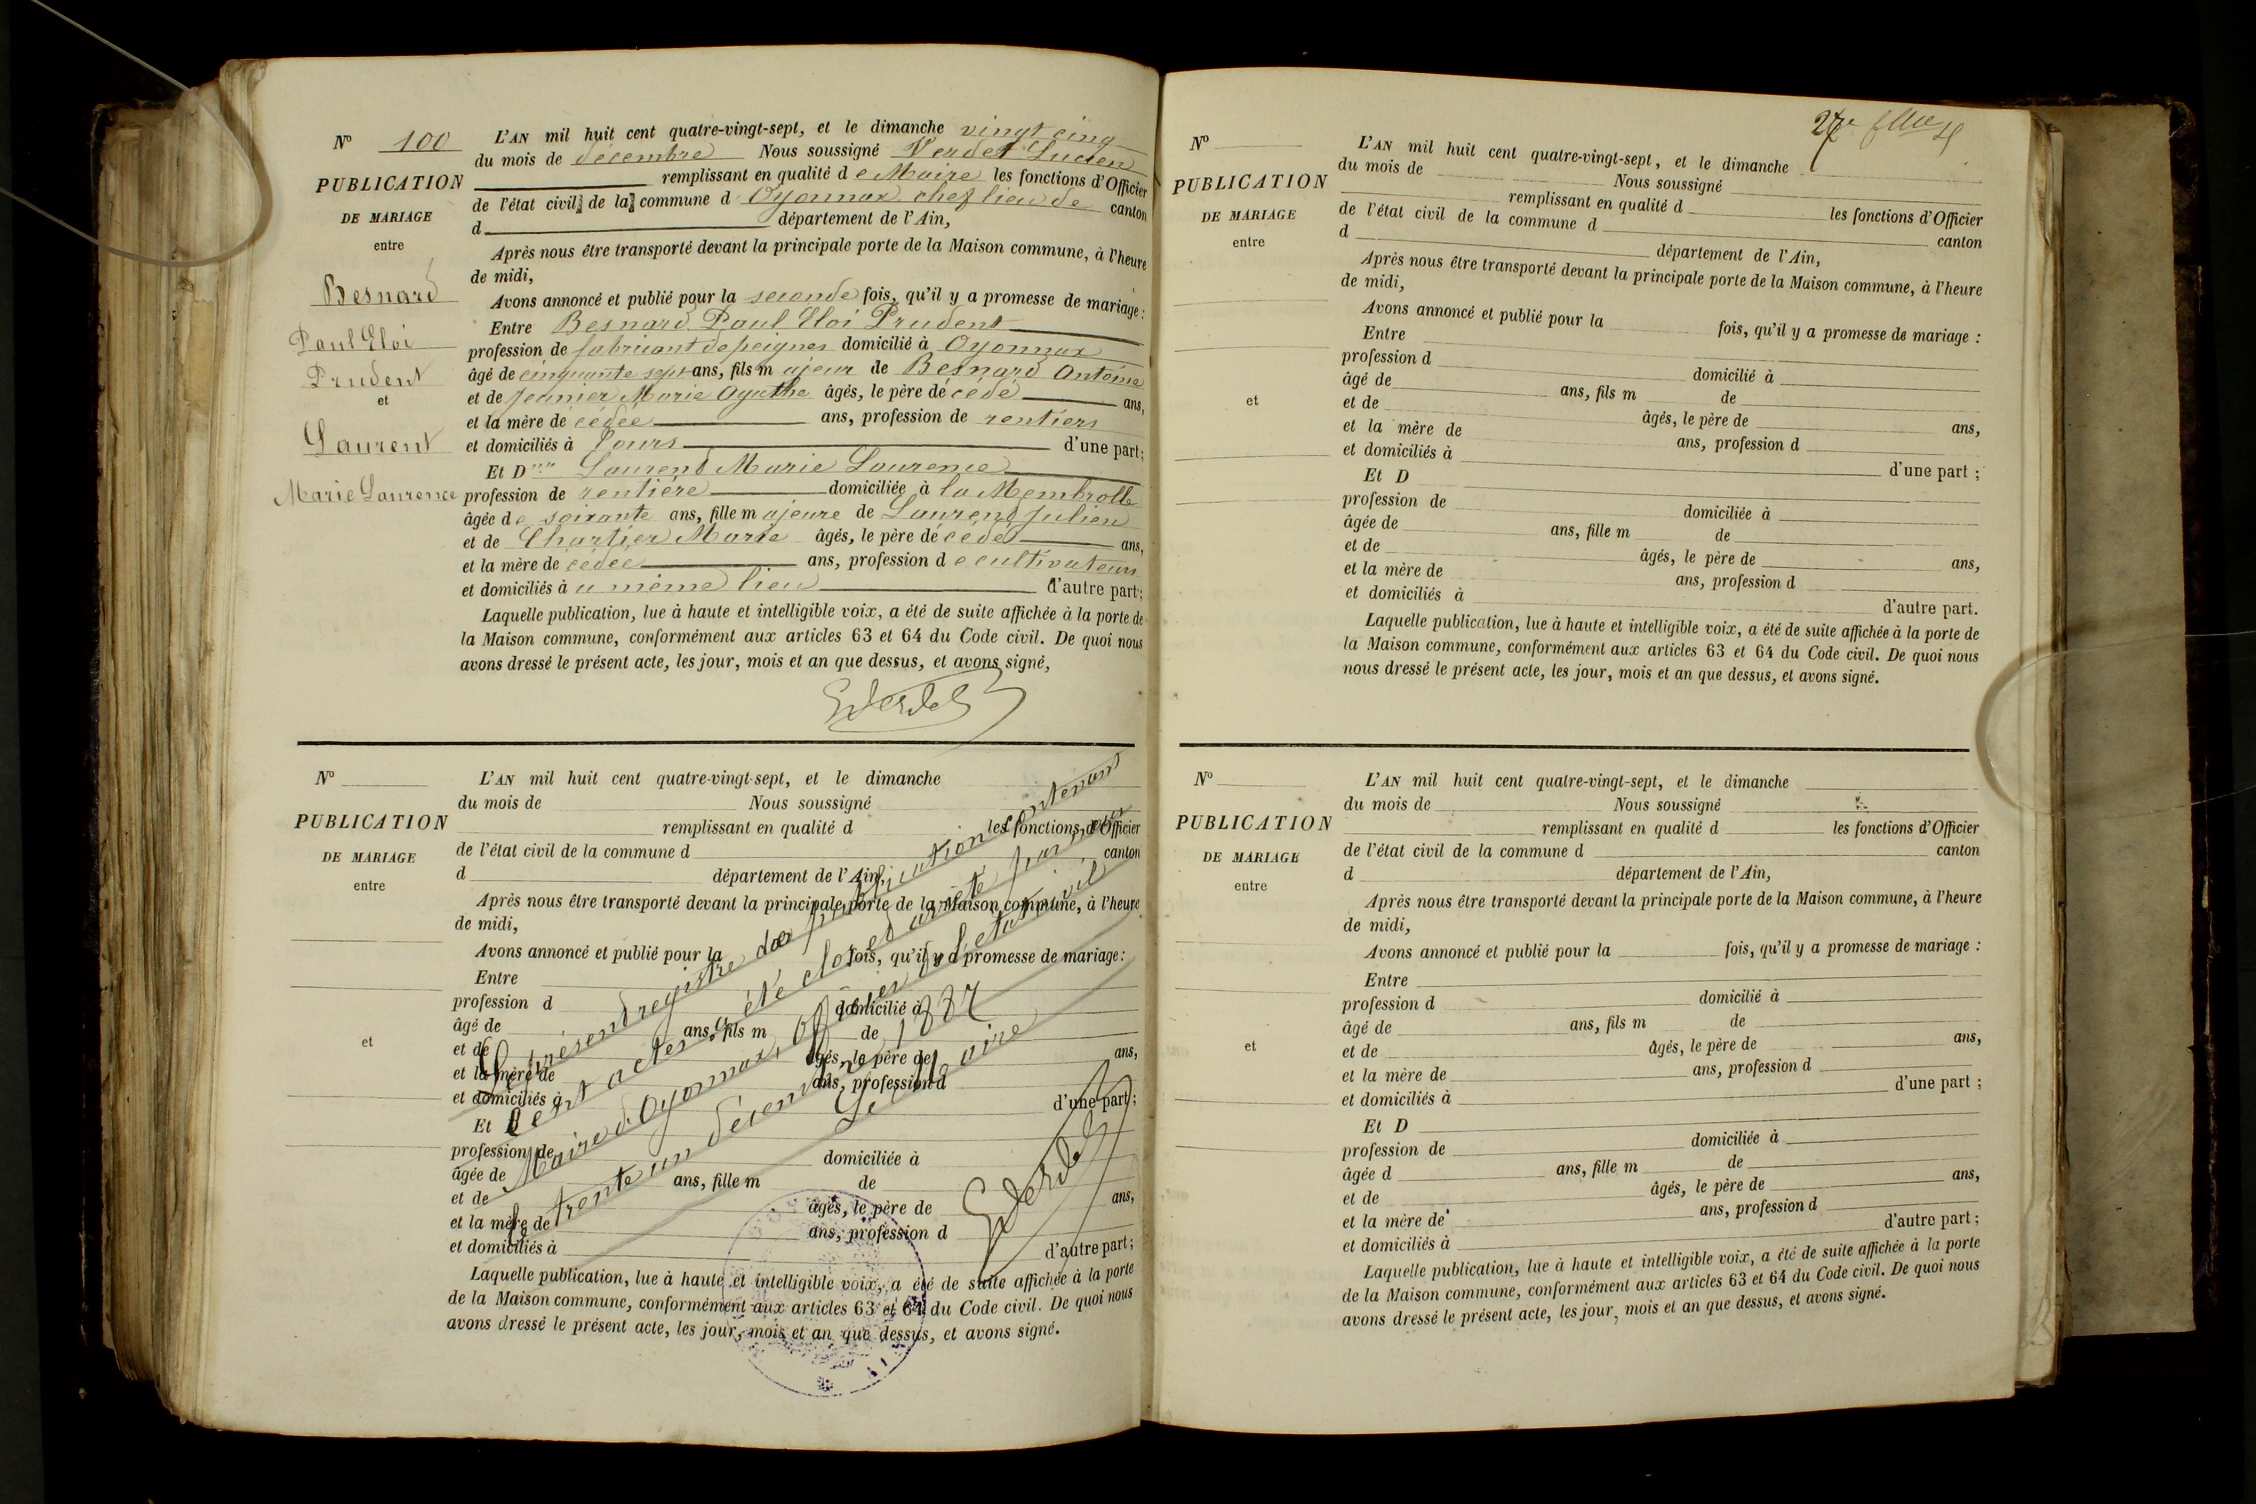 Nº 100
PUBLICATION
DE MARIAGE
entre
Besnard
Paul Eloi
Prudent
et
Laurent
Marie Laurence
L'AN mil huit cent quatre-vingt-sept, et le dimanche vingt cinq
du mois de décembre Nous soussigné Verdet Lucien
remplissant en qualité de Maire les fonctions d'Officier
de l'état civil de la commune d Oyonnax chef lieu de canton
d département de l'Ain,
Après nous être transporté devant la principale porte de la Maison commune, à l'heure
de midi,
Avons annoncé et publié pour la seconde fois, qu'il y a promesse de mariage :
Entre Besnard Paul Eloi Prudent
profession de fabricant de peignes domicilié à Oyonnax
âgé de cinquante sept ans, fils majeur de Besnard Antoine
et de Jeanier Marie Agathe âgés, le père décédé ans,
et la mère décédée ans, profession de rentiers
et domiciliés à Tours d'une part;
Et D Laurend Marie Laurence
profession de rentière domiciliée à la Membrolle
âgée de soixante ans, fille majeure de Laurend Julien
et de Chartier Marie âgés, le père décédé ans,
et la mère décédée ans, profession de cultivateurs
et domiciliés àu même lieu d'autre part;
Laquelle publication, lue à haute et intelligible voix, a été de suite affichée à la porte de
la Maison commune, conformément aux articles 63 et 64 du Code civil. De quoi nous
avons dressé le présent acte, les jour, mois et an que dessus, et avons signé,
Nº
PUBLICATION
DE MARIAGE
entre
et
L'AN mil huit cent quatre-vingt-sept, et le dimanche
du mois de Nous soussigné
remplissant en qualité d les fonctions d'Officier
de l'état civil de la commune d canton
d département de l'Ain,
Après nous être transporté devant la principale porte de la Maison commune, à l'heure
de midi,
Avons annoncé et publié pour la fois, qu'il y a promesse de mariage:
Entre
profession d domicilié à
âgé de ans, fils m de
et de âgés, le père de ans,
et la mère de ans, profession d
et domiciliés à d'une part;
Et D
profession de domiciliée à
âgée de ans, fille m de
et de âgés, le père de ans,
et la mère de ans, profession d
et domiciliés à d'autre part;
Laquelle publication, lue à haute et intelligible voix, a été de suite affichée à la porte
de la Maison commune, conformément aux articles 63 et 64 du Code civil. De quoi nous
avons dressé le présent acte, les jour, mois et an que dessus, et avons signé.
Le présend registre des publications contenant
Cent actes a été clos et arrêté par nous
Maire d'Oyonnax, officier de l'état civil
le trente un décembre 1887
Le Maire
Nº
PUBLICATION
DE MARIAGE
entre
et
L'AN mil huit cent quatre-vingt-sept, et le dimanche
du mois de Nous soussigné
remplissant en qualité d les fonctions d'Officier
de l'état civil de la commune d canton
d département de l'Ain,
Après nous être transporté devant la principale porte de la Maison commune, à l'heure
de midi,
Avons annoncé et publié pour la fois, qu'il y a promesse de mariage :
Entre
profession d domicilié à
âgé de ans, fils m de
et de âgés, le père de ans,
et la mère de ans, profession d
et domiciliés à d'une part ;
Et D
profession de domiciliée à
âgée de ans, fille m de
et de âgés, le père de ans,
et la mère de ans, profession d
et domiciliés à d'autre part.
Laquelle publication, lue à haute et intelligible voix, a été de suite affichée à la porte de
la Maison commune, conformément aux articles 63 et 64 du Code civil. De quoi nous
nous dressé le présent acte, les jour, mois et an que dessus, et avons signé.
Nº
PUBLICATION
DE MARIAGE
entre
et
L'AN mil huit cent quatre-vingt-sept, et le dimanche
du mois de Nous soussigné
remplissant en qualité d les fonctions d'Officier
de l'état civil de la commune d canton
d département de l'Ain,
Après nous être transporté devant la principale porte de la Maison commune, à l'heure
de midi,
Avons annoncé et publié pour la fois, qu'il y a promesse de mariage :
Entre
profession d domicilié à
âgé de ans, fils m de
et de âgés, le père de ans,
et la mère de ans, profession d
et domiciliés à d'une part ;
Et D
profession de domiciliée à
âgée d ans, fille m de
et de âgés, le père de ans,
et la mère de ans, profession d
et domiciliés à d'autre part ;
Laquelle publication, lue à haute et intelligible voix, a été de suite affichée à la porte
de la Maison commune, conformément aux articles 63 et 64 du Code civil. De quoi nous
avons dressé le présent acte, les jour, mois et an que dessus, et avons signé.